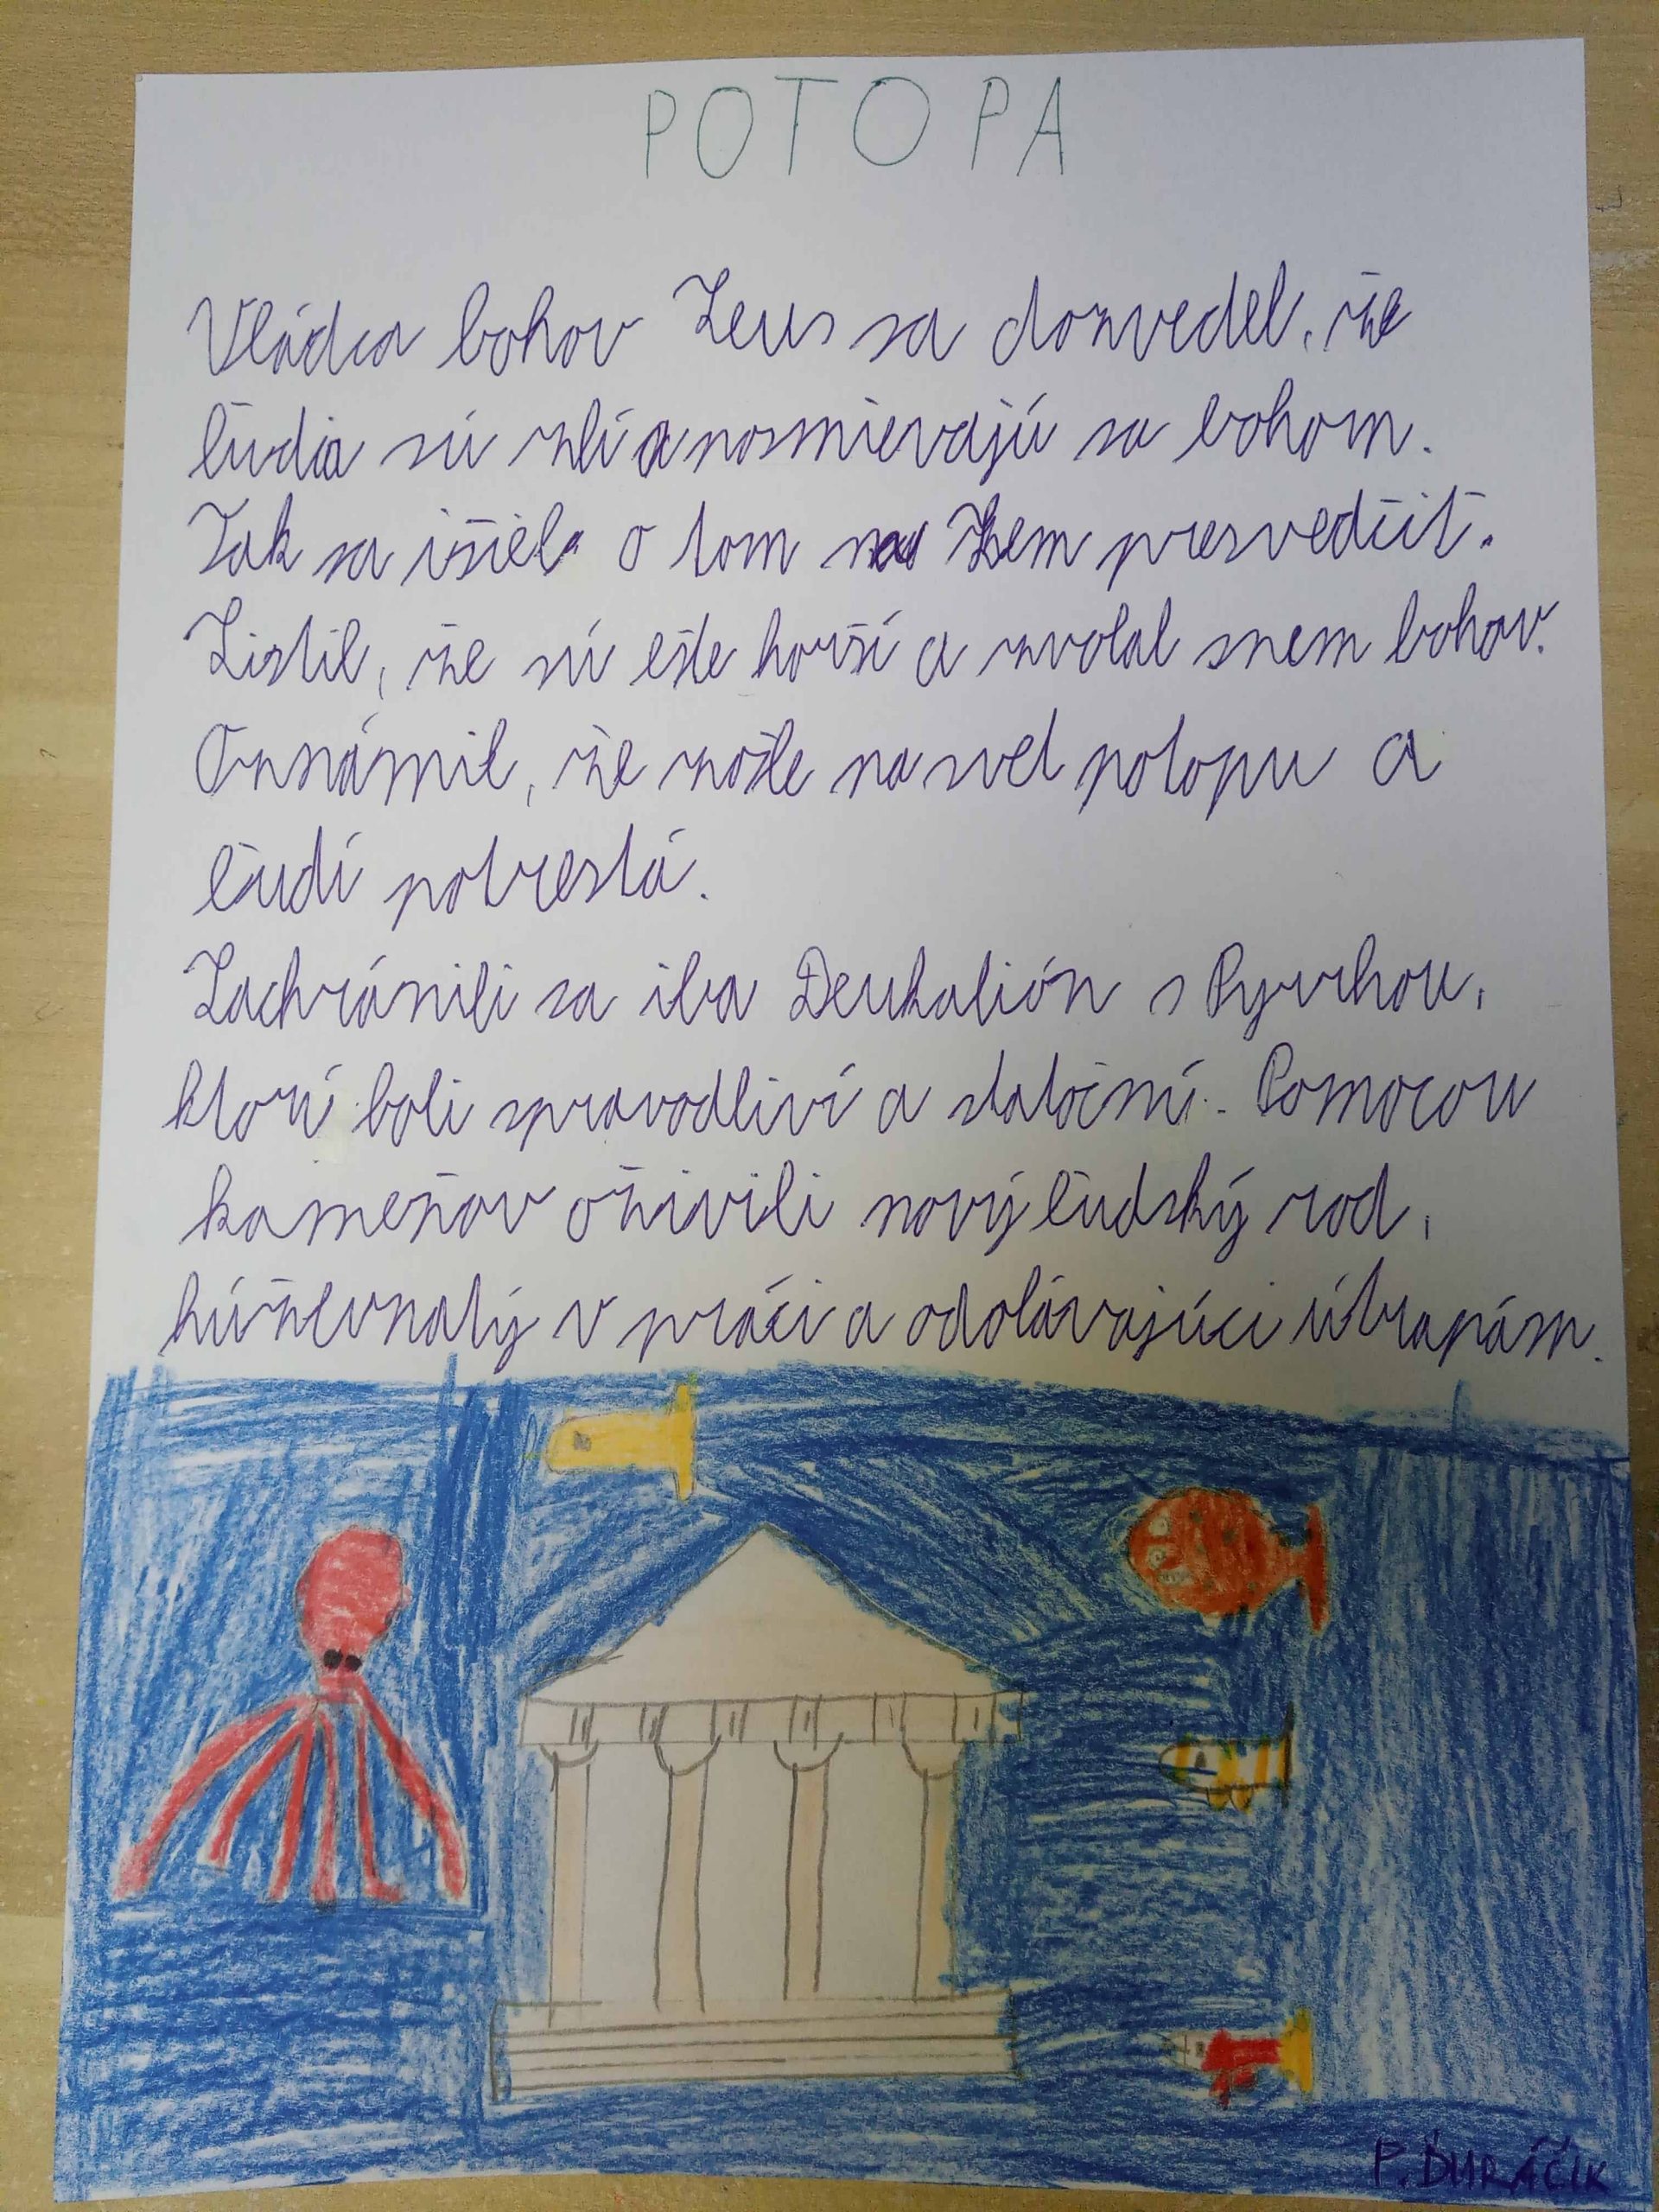 POTOPA
Vládca bohov Zeus sa dozvedel, že
ľudia sú zlí a posmievajú sa bohom.
Tak sa išiel o tom na Zem presvedčiť.
Zistil, že sú ešte horší a zvolal snem bohov.
Oznámil, že zošle na svet potopu a
ľudí potrestá.
Zachránili sa iba Deukalión s Pyrrhou,
ktorí boli spravodliví a statoční. Pomocou
kameňov oživili nový ľudský rod,
húževnatý v práci a odolávajúci útrapám.
P. ĎURÁČIK